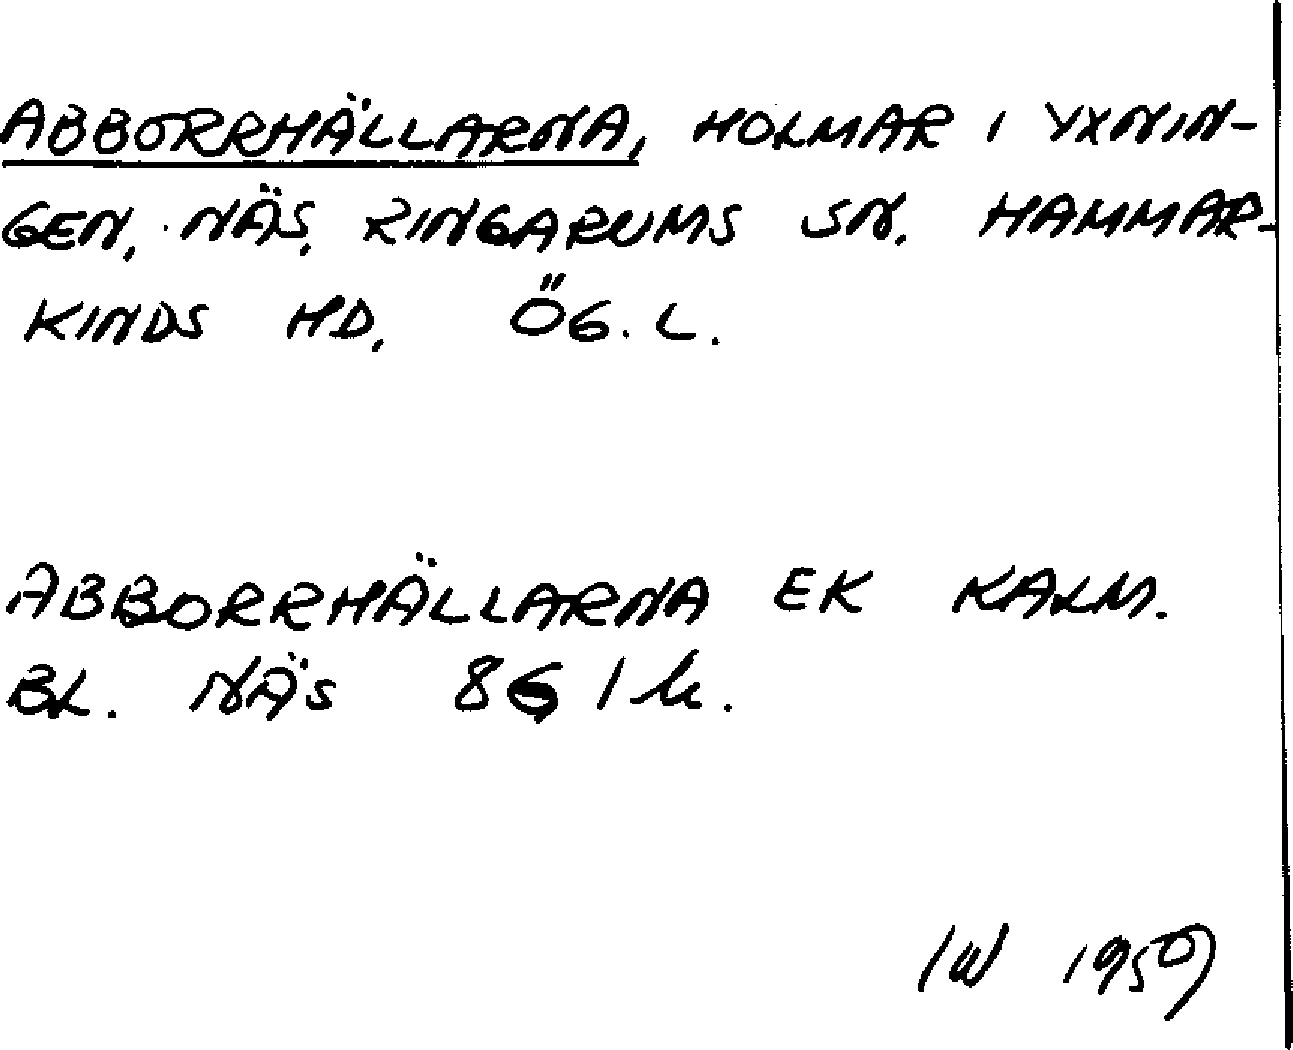 ABBORRHÄLLARNA, HOLMAR I YXNIN-
GEN, NÄS, RINGARUMS SN. HAMMAR-
KINDS HD, ÖG. L.
ABBORRHÄLLARNA EK KALM.
BL. NÄS 8G 1 h.
IW 1959